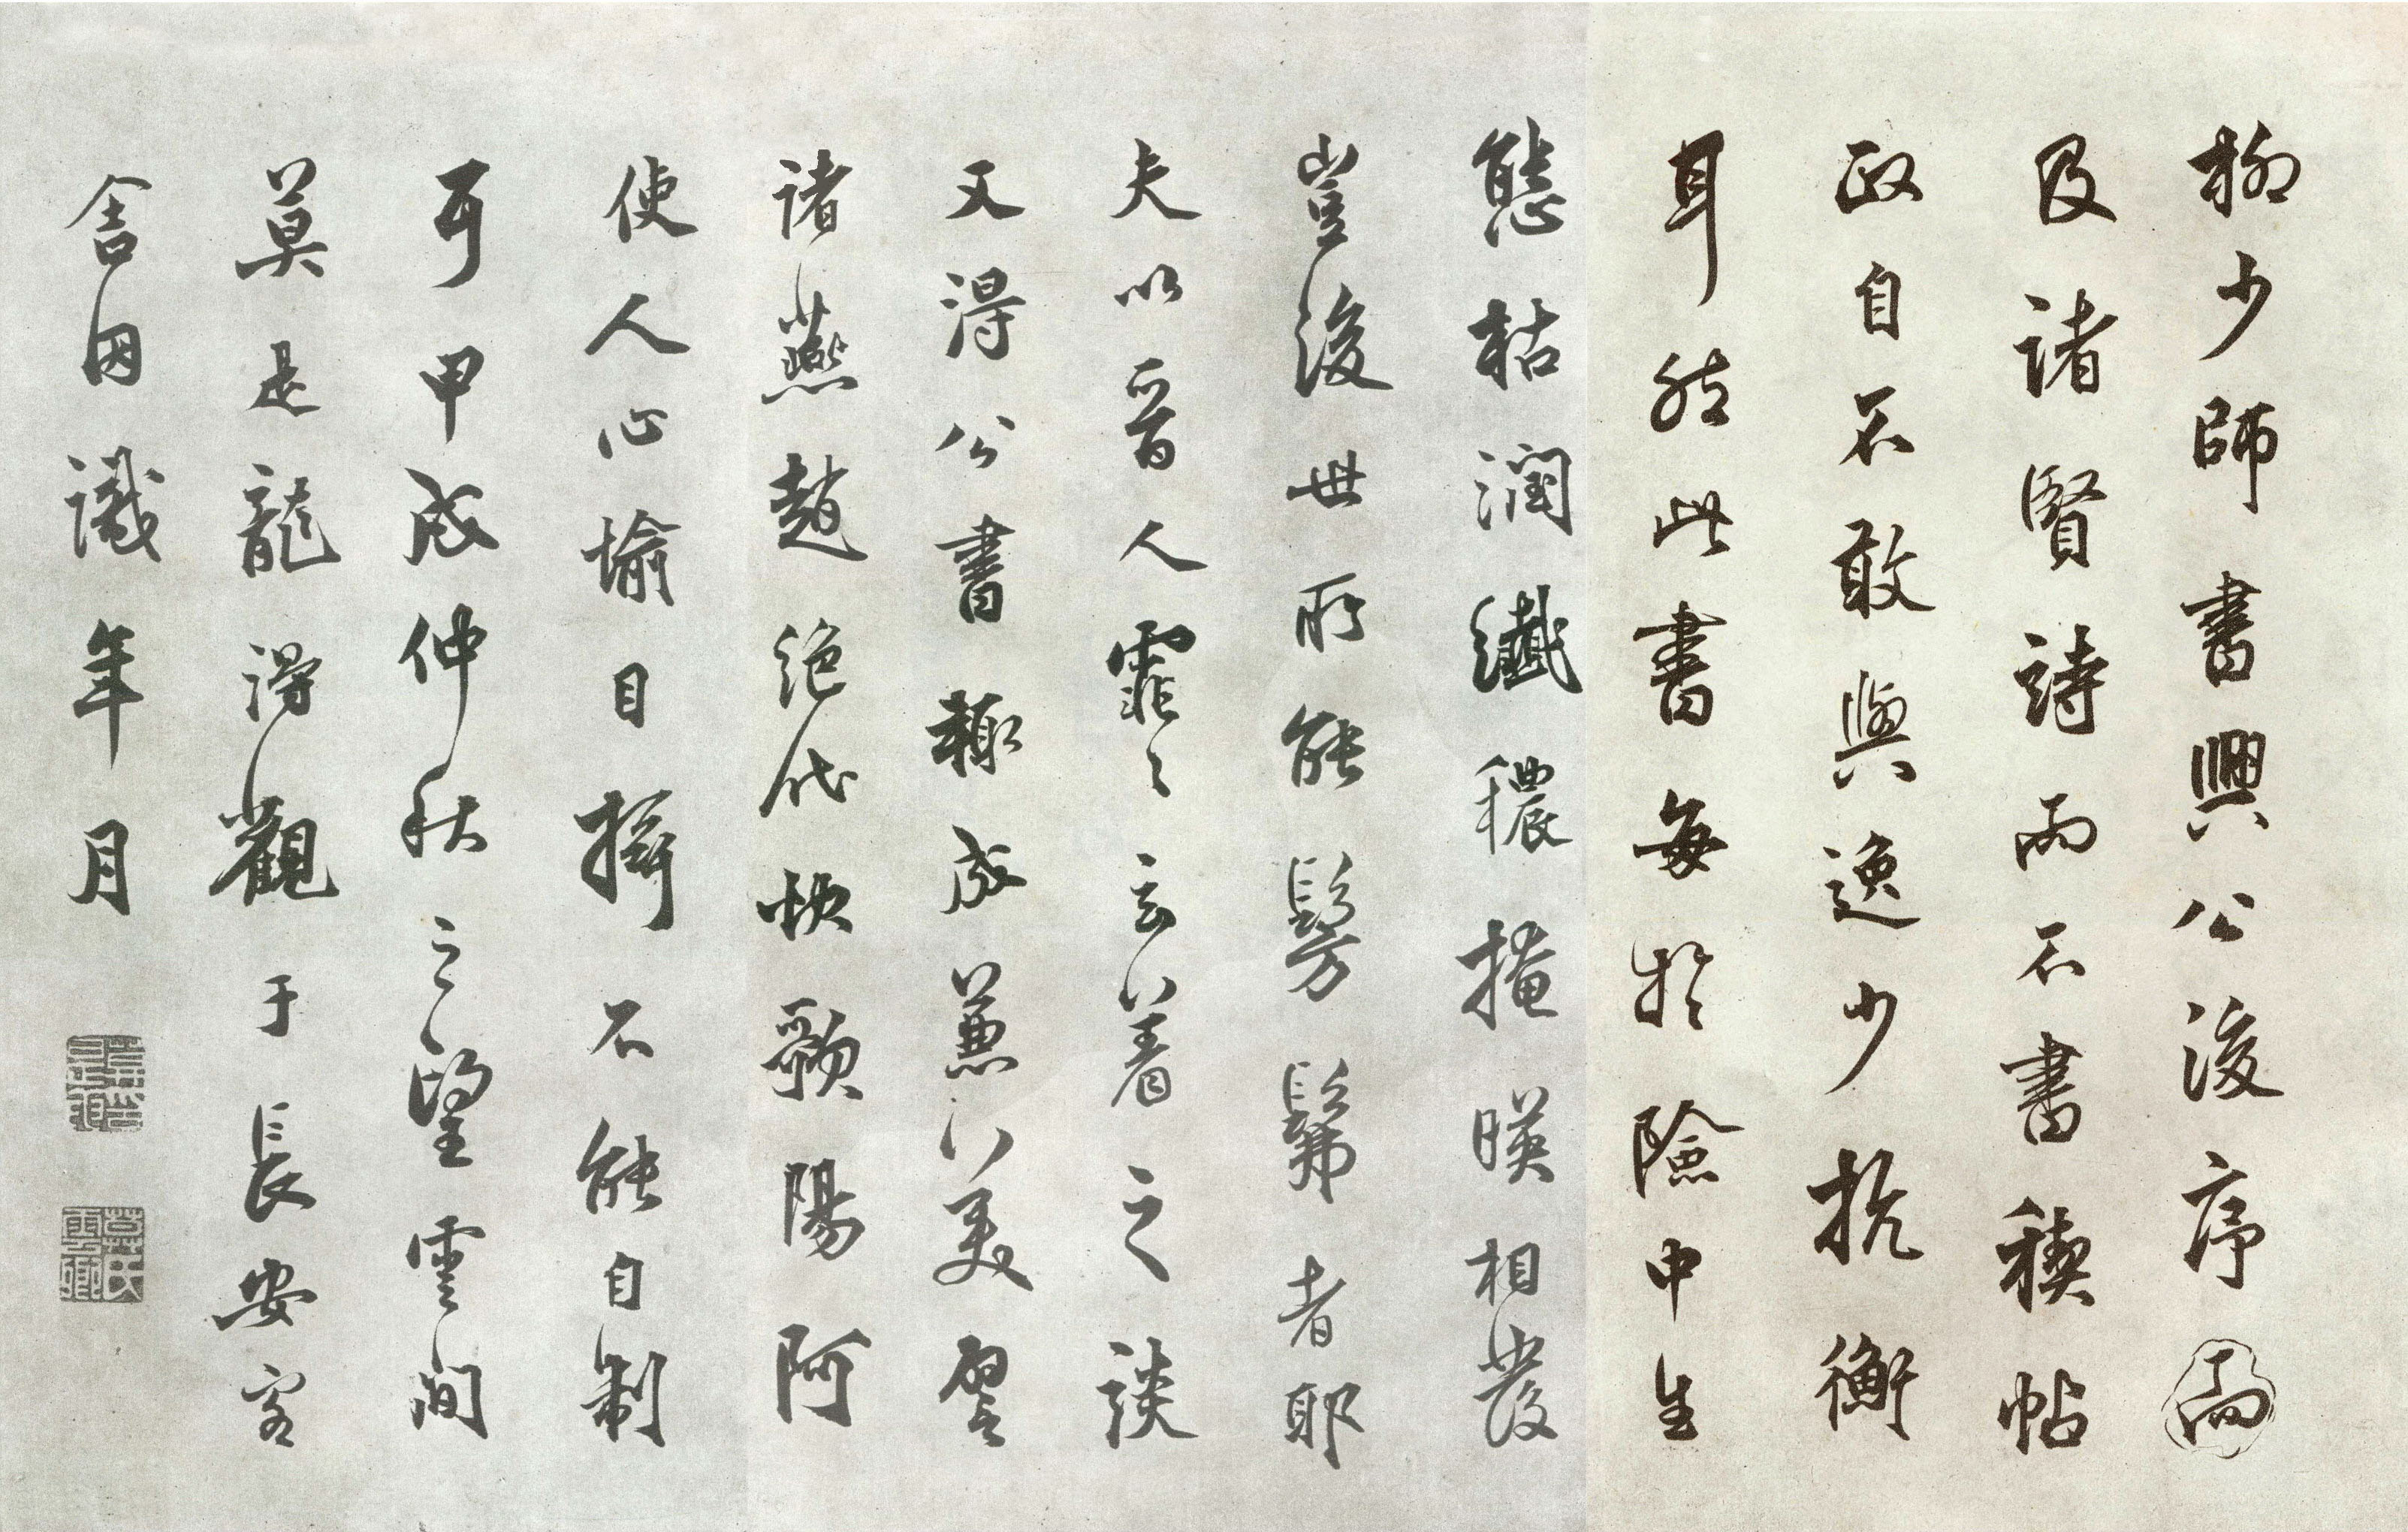 柳少師書興公後序而
及諸賢詩而不書稧帖
政自不敢與逸少抗衡
耳然此書每於險中生
態枯潤纖穠掩暎相發
豈後世所能髣髴者耶
夫以晉人霏〻玄着之談
又得公書輙成兼美譬
諸燕趙絕代快歌陽阿
使人心愉目搖不能自制
耳甲戌仲秋之望雲間
莫是龍得觀于長安客
舍因識年月
莫氏雲卿